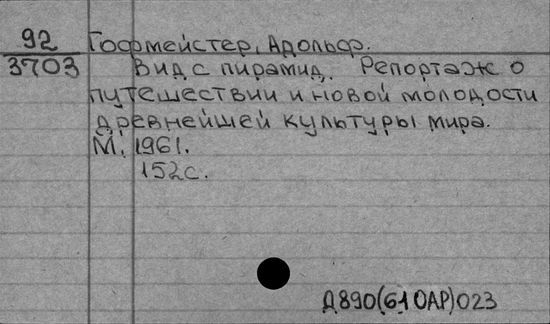 92 Гофмейстер, Адольф.
3703 Вид с пирамид. Репортаж о
путешествии и новой молодости
древнейшей культуры мира.
М., 1961.
152с.
Д890(61ОАР)023